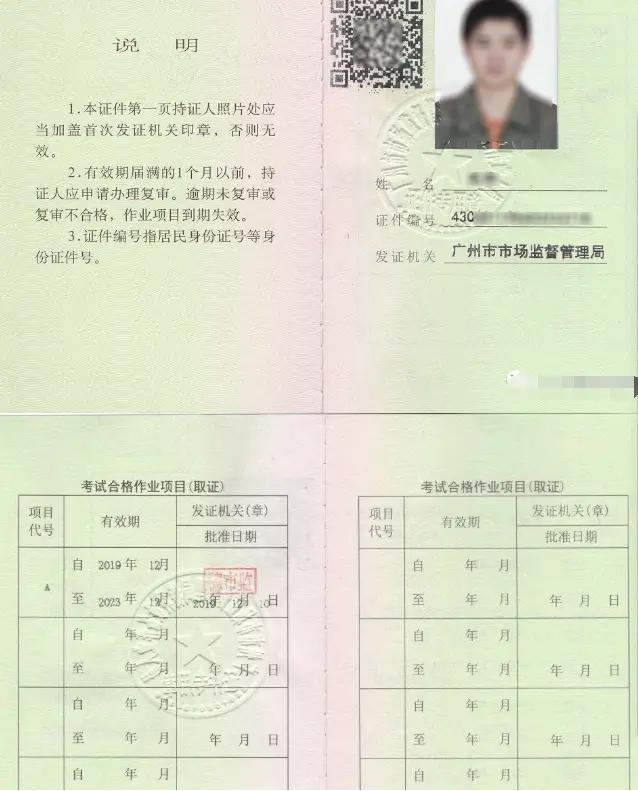 说 明
1.本证件第一页持证人照片处应
当加盖首次发证机关印章，否则无
效。
2.有效期届满的1个月以前，持
证人应申请办理复审。逾期未复审或
复审不合格，作业项目到期失效。
3.证件编号指居民身份证号等身
份证件号。
姓 名
证件编号 430
发证机关 广州市市场监督管理局
考试合格作业项目(取证)
项目代号 有效期 发证机关(章)
批准日期
A 自 2019 年 12月
至 2023 年 12月 2019年 12月 10日
自 年 月
至 年 月 年 月 日
自 年 月
至 年 月 年 月 日
自 年 月
考试合格作业项目(取证)
项目代号 有效期 发证机关(章)
批准日期
自 年 月
至 年 月 年 月 日
自 年 月
至 年 月 年 月 日
自 年 月
至 年 月 年 月 日
自 年 月